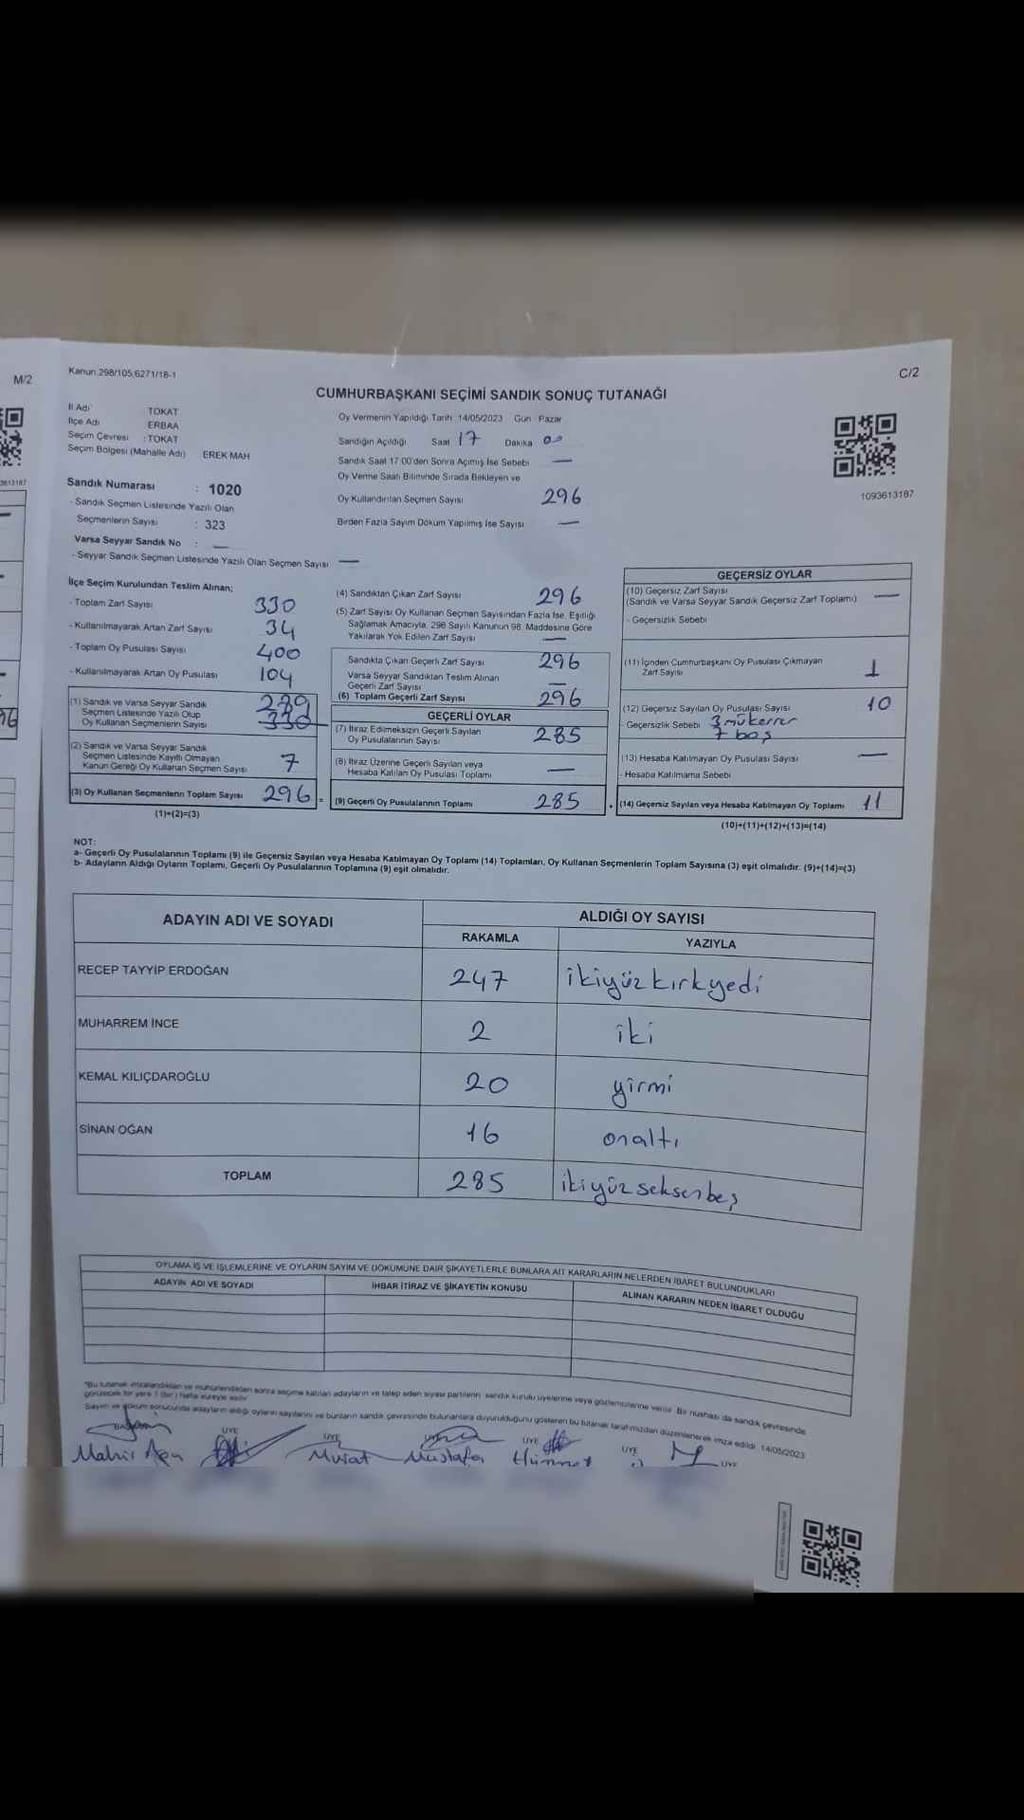 M/2
Kanun 298/105,6271/18-1
C/2
CUMHURBAŞKANI SEÇİMİ SANDIK SONUÇ TUTANAĞI
İl Adı : TOKAT
İlçe Adı : ERBAA
Seçim Çevresi : TOKAT
Seçim Bölgesi (Mahalle Adı) EREK MAH
Oy Vermenin Yapıldığı Tarih 14/05/2023 Gün Pazar
Sandığın Açıldığı Saat 17 Dakika 00
Sandık Saat 17:00'den Sonra Açımış İse Sebebi —
Oy Verme Saati Bitiminde Sırada Bekleyen ve
Oy Kullandırılan Seçmen Sayısı 296
Birden Fazla Sayım Döküm Yapılmış İse Sayısı —
1093613187
Sandık Numarası : 1020
- Sandık Seçmen Listesinde Yazılı Olan
Seçmenlerin Sayısı : 323
Varsa Seyyar Sandık No : —
- Seyyar Sandık Seçmen Listesinde Yazılı Olan Seçmen Sayısı —
İlçe Seçim Kurulundan Teslim Alınan;
- Toplam Zarf Sayısı 330
- Kullanılmayarak Artan Zarf Sayısı 34
- Toplam Oy Pusulası Sayısı 400
- Kullanılmayarak Artan Oy Pusulası 104
(1) Sandık ve Varsa Seyyar Sandık 289
Seçmen Listesinde Yazılı Olup 330
Oy Kullanan Seçmenlerin Sayısı
(2) Sandık ve Varsa Seyyar Sandık
Seçmen Listesinde Kayıtlı Olmayan
Kanun Gereği Oy Kullanan Seçmen Sayısı 7
(3) Oy Kullanan Seçmenlerin Toplam Sayısı 296
(1)+(2)=(3)
(4) Sandıktan Çıkan Zarf Sayısı 296
(5) Zarf Sayısı Oy Kullanan Seçmen Sayısından Fazla İse, Eşitliği
Sağlamak Amacıyla, 298 Sayılı Kanunun 98. Maddesine Göre
Yakılarak Yok Edilen Zarf Sayısı —
Sandıkta Çıkan Geçerli Zarf Sayısı 296
Varsa Seyyar Sandıktan Teslim Alınan
Geçerli Zarf Sayısı —
(6) Toplam Geçerli Zarf Sayısı 296
GEÇERLİ OYLAR
(7) İtiraz Edilmeksizin Geçerli Sayılan
Oy Pusulalarının Sayısı 285
(8) İtiraz Üzerine Geçerli Sayılan veya
Hesaba Katılan Oy Pusulası Toplamı —
(9) Geçerli Oy Pusulalarının Toplamı 285
GEÇERSİZ OYLAR
(10) Geçersiz Zarf Sayısı
(Sandık ve Varsa Seyyar Sandık Geçersiz Zarf Toplamı) —
- Geçersizlik Sebebi
(11) İçinden Cumhurbaşkanı Oy Pusulası Çıkmayan
Zarf Sayısı 1
(12) Geçersiz Sayılan Oy Pusulası Sayısı 10
- Geçersizlik Sebebi 3 mükerrer
7 boş
(13) Hesaba Katılmayan Oy Pusulası Sayısı —
- Hesaba Katılmama Sebebi
(14) Geçersiz Sayılan veya Hesaba Katılmayan Oy Toplamı 11
(10)+(11)+(12)+(13)=(14)
NOT:
a- Geçerli Oy Pusulalarının Toplamı (9) ile Geçersiz Sayılan veya Hesaba Katılmayan Oy Toplamı (14) Toplamları, Oy Kullanan Seçmenlerin Toplam Sayısına (3) eşit olmalıdır. (9)+(14)=(3)
b- Adayların Aldığı Oyların Toplamı, Geçerli Oy Pusulalarının Toplamına (9) eşit olmalıdır.
ADAYIN ADI VE SOYADI ALDIĞI OY SAYISI
RAKAMLA YAZIYLA
RECEP TAYYİP ERDOĞAN 247 ikiyüzkırkyedi
MUHARREM İNCE 2 iki
KEMAL KILIÇDAROĞLU 20 yirmi
SİNAN OĞAN 16 onaltı
TOPLAM 285 ikiyüzseksenbeş
OYLAMA İŞ VE İŞLEMLERİNE VE OYLARIN SAYIM VE DÖKÜMÜNE DAİR ŞİKAYETLERLE BUNLARA AİT KARARLARIN NELERDEN İBARET BULUNDUKLARI
ADAYIN ADI VE SOYADI İHBAR İTİRAZ VE ŞİKAYETİN KONUSU ALINAN KARARIN NEDEN İBARET OLDUĞU
*Bu tutanak imzalandıktan ve mühürlendikten sonra seçime katılan adayların ve talep eden siyasi partilerin sandık kurulu üyelerine veya gözlemcilerine verilir. Bir nüshası da sandık çevresinde
görülecek bir yere 1 (bir) hafta süreyle asılır.
Sayım ve döküm sonucunda adayların aldığı oyların sayılarını ve bunların sandık çevresinde bulunanlara duyurulduğunu gösteren bu tutanak tarafımızdan düzenlenerek imza edildi. 14/05/2023
ÜYE ÜYE ÜYE ÜYE ÜYE
Mahir Murat Mustafa